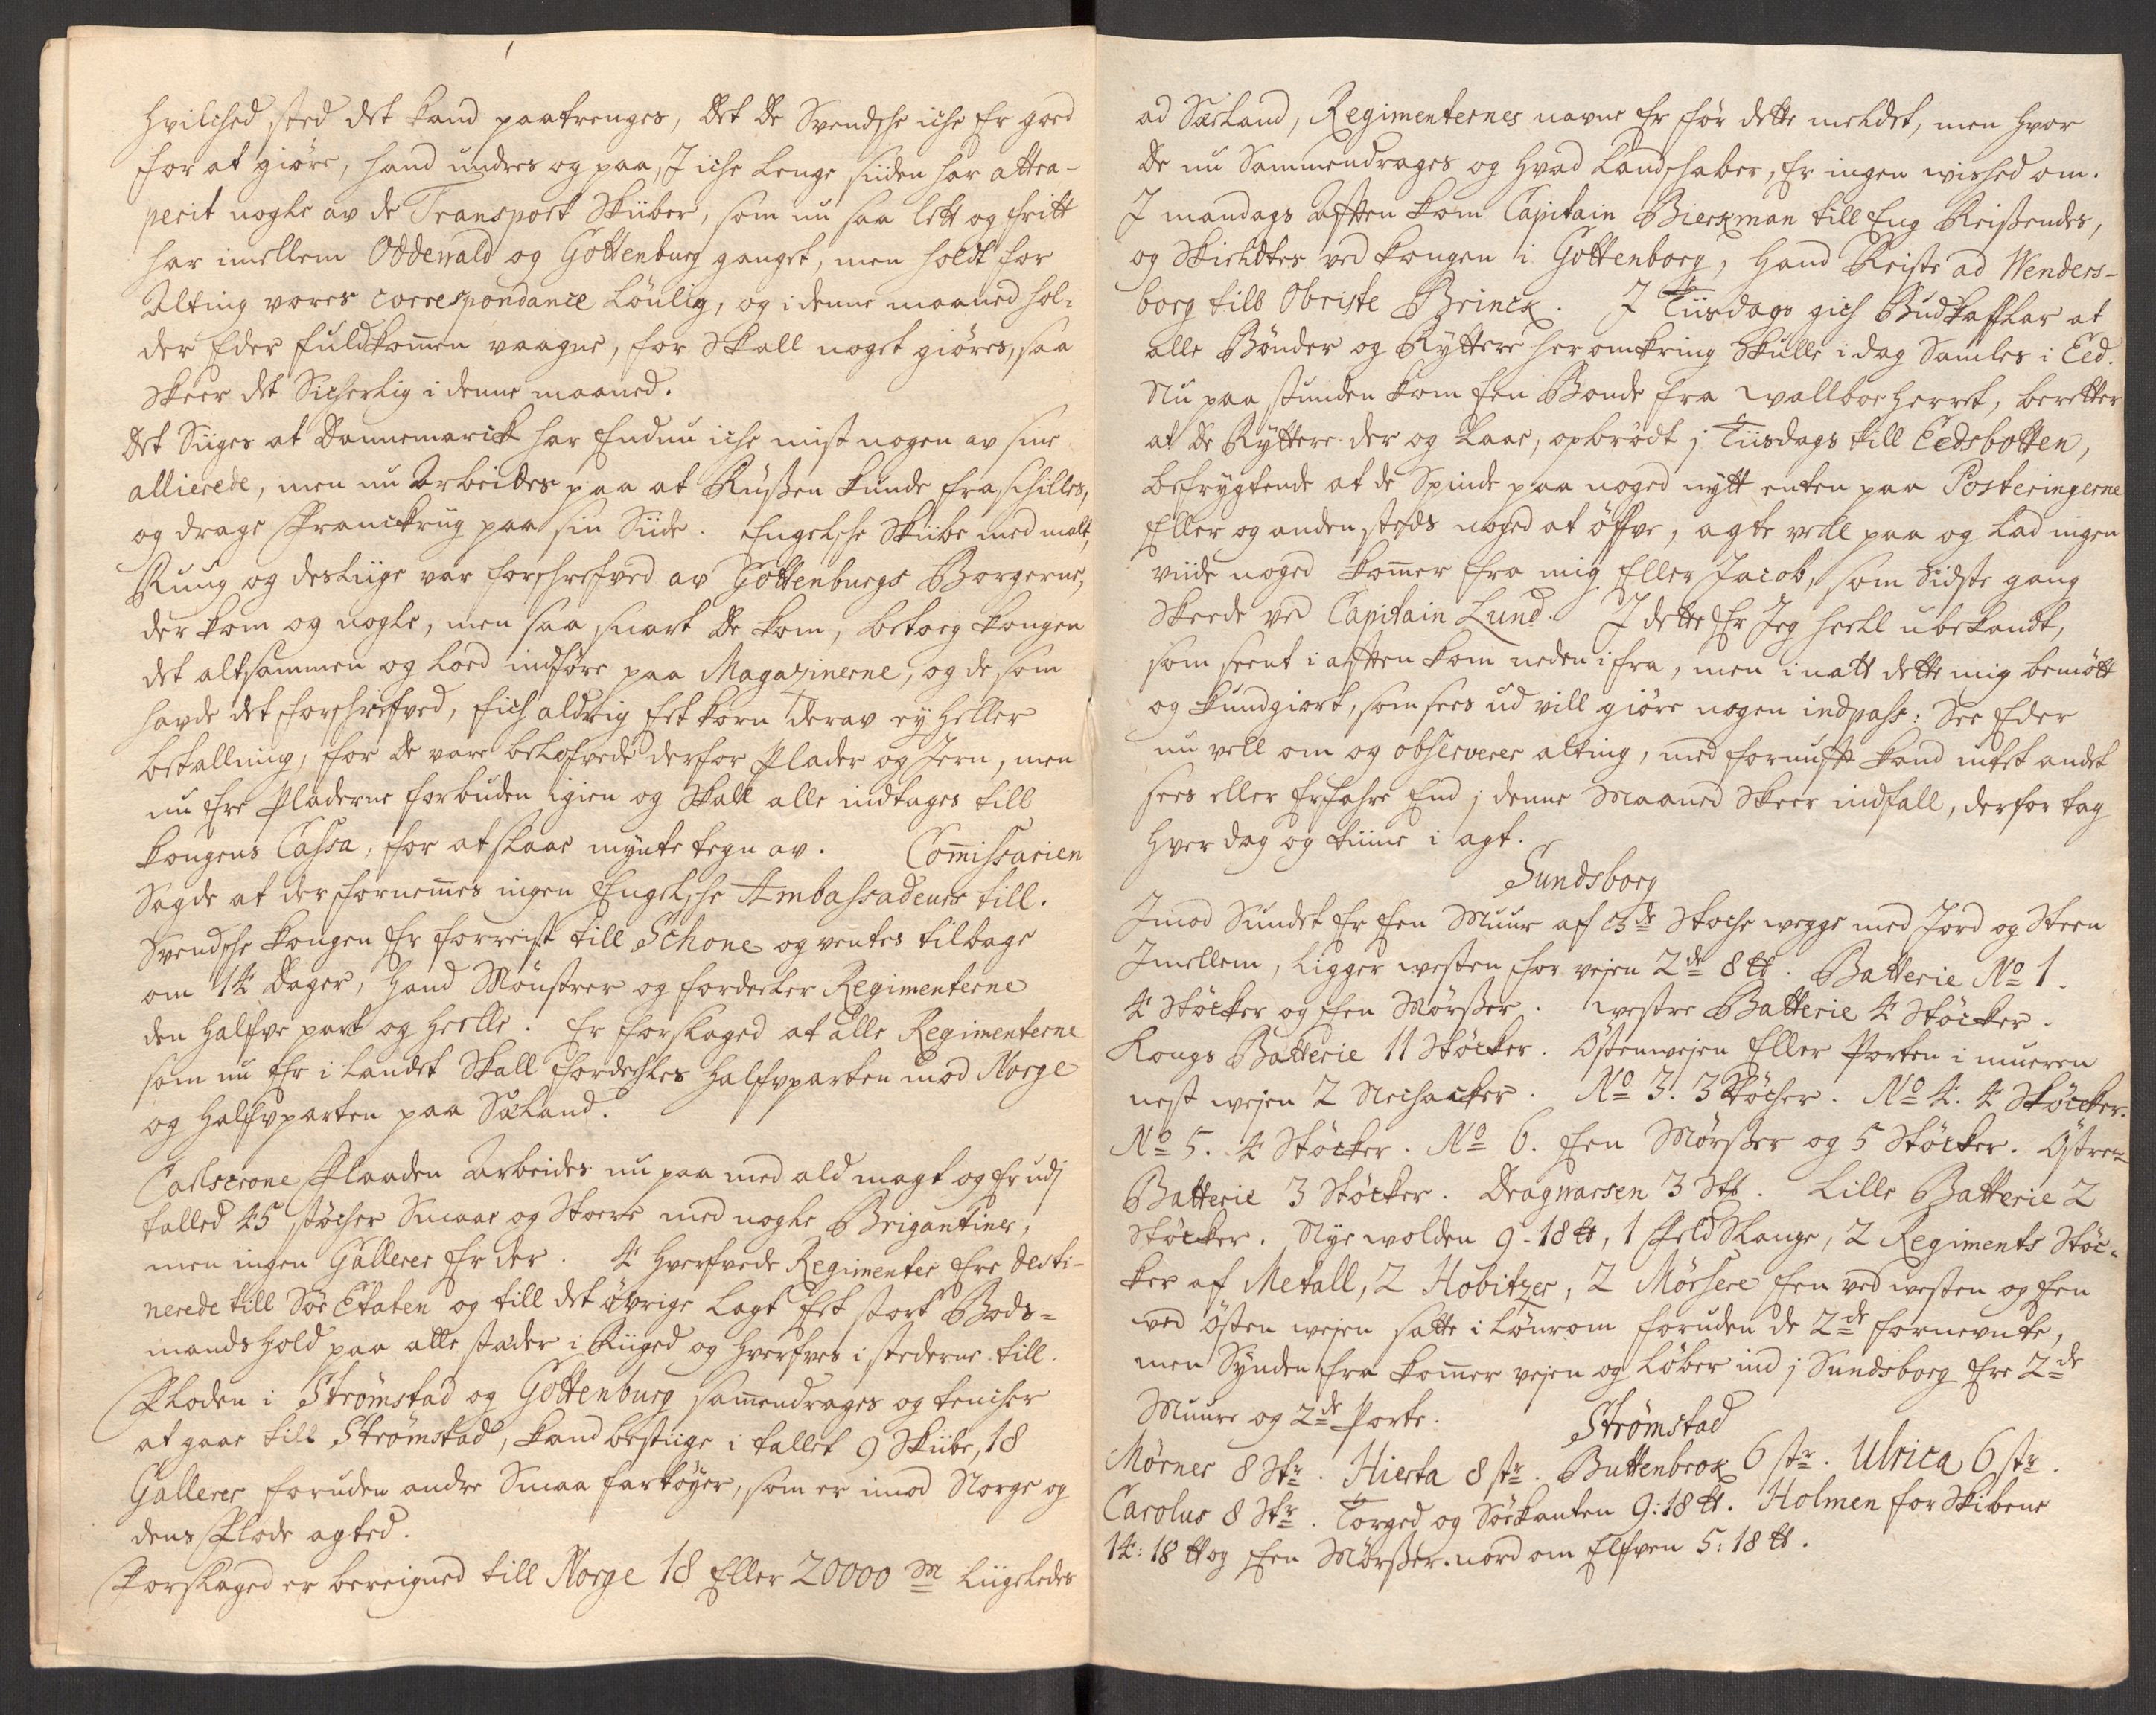 Hvilched sted det kand paatrenges, det de Svendsche iche Er goed
for at giøre, hand undres og paa, I iche lenge siiden har attra-
perit nogle av de Transport Skiiber, som nu saa lett og fritt
har imellem Oddewald og Gottenburg ganget, men holdt for
Alting vores correspondance Lönlig, og i denne maaned hol-
der Eder fuldkom̄en vaagne, for Skall noget giøres, saa
Skeer det Sicherlig i denne maaned.
Det Siiges at Dannemarck har Endnu iche mist nogen av sine
allierede, men nu Arbeides paa at Rüssen kunde fraschilles,
og drage Franckrüg paa sin Siide. Engelsche Skiibe med malt,
Ruug og desliige var forschrefved av Gottenburgs Borgerne,
der kom og nogle, men saa snart de kom, betoeg kongen
det altsammen og loed indføre paa Magazinerne, og de som
hafde det forschrefved, fich aldrig Eet korn derav ey heller
betalling, for de vare behofvede derfor Plader og Jern, men
nu Ere Pladerne forbuden igien og Skall alle indtages till
kongens Cassa, for at slaae mynte tegn av. Com̄issarien
Sagde at der fornem̄es ingen Engelsche Ambassadeurs till.
Svendsche kongen Er forreist till Schone og ventes tilbage
om 14 Dager, hand Mönstrer og fordeeler Regimenterne
den Halfve part og heelle. Er forslaged at alle Regimenterne
som nu Er i Landet Skall fordeehles halfvparten mod Norge
og halfvparten paa Sæland.
Carlscrone Flaaden Arbeides nu paa med ald magt og Er udj
talled 45 støcher Smaae og Stoere med nogle Brigantiner,
men ingen Gallerer Er der. 4 hverfvede Regimenter Ere desti-
nerede till Söe Etaten og till det öfrige lagt Eet stort Bods-
mands hold paa alle stæder i Riiged og hverfves i stederne till.
Floden i Strømstad og Gottenburg sam̄endrages og tencher
at gaae till Strømstad, kand bestiige i tallet 9 Skiibe, 18
Gallerer foruden andre Smaa fartöyer, som er imod Norge og
dens Flode agted.
Forslaged er bereigned till Norge 18 Eller 20000 M liigeledes
ad Sæeland, Regimenternes navne Er för dette meldet, men hvor
de nu Sammendrages og hvad Landschaber, Er ingen wished om.
I mandags Aftten kom Capitain Bierkman till Eng Reissendes,
og Skichtes ved kongen i Gottenborg, hand Reiste ad Wenders-
borg till Obriste Brinck. I Tiisdags gich Budkafflar at
alle Bönder og Ryttere her omkring Skulle i dag Samles i Eed.
Nu paa stunden kom Een Bonde fra wallboe herret, beretter
at de Ryttere der og Laae, opbrödt j Tiisdags till Eedsbotten,
befrygtende at de Spinde paa noged nytt enten paa Posteringerne
Eller og anden steds noged at öffve, agte vell paa og Lad ingen
viide noged kom̄er fra mig Eller Jacob, som Sidste gang
Skeede ved Capitain Lund. I dette Er Jeg heell ubekandt,
som seent i aftten kom neden ifra, men i natt dette mig bemött
og kundgiort, som sees ud vill giøre nogen indpass: See Eder
nu vell om og observerer alting, med fornuft kand intet andet
sees eller Erfahre End j denne Maaned Skeer indfall, derfor tag
hver dag og tiime i agt.
Sundsborg
Imod Sundet Er Een Muur af 3de Stoche wegge med Jord og Steen
Imellem, ligger westen for vejen 2de 8 ℔. Batterie No 1.
4 Stöcker og Een Mörsser. westre Batterie 4 Stöcker.
Kongs Batterie 11 Stöcker. Östenwejen Eller Porten i mueren
nest wejen 2 Neihacker. No 3. 3 Stöcker. No 4. 4 Stöcker.
No 5. 4 Stöcker. No 6. Een Mörsser og 5 Stöcker. Östre
Batterie 3 Stöcker. Dragwarsen 3 St. Lille Batterie 2
Stöcker. Nye wolden 9 - 18 ℔, 1 Feld Slange, 2 Regiments Stöc-
ker af Metall, 2 Hobitzer, 2 Mörsere Een ved westen og Een
ved Östen wejen satte i Lönrom foruden de 2de fornevnte,
men Synden fra kom̄er vejen og Löber ind j Sundsborg Ere 2de
Muure og 2de Porte.
Strømstad
Mörner 8 Str. Hierta 8 str. Buttenbrok 6 str. Ulrica 6 str.
Carolus 8 Str. Torged og Söekanten 9: 18 ℔. Holmen for Skibene
14: 18 ℔ og Een Mörsser. nord om Elfven 5: 18 ℔.